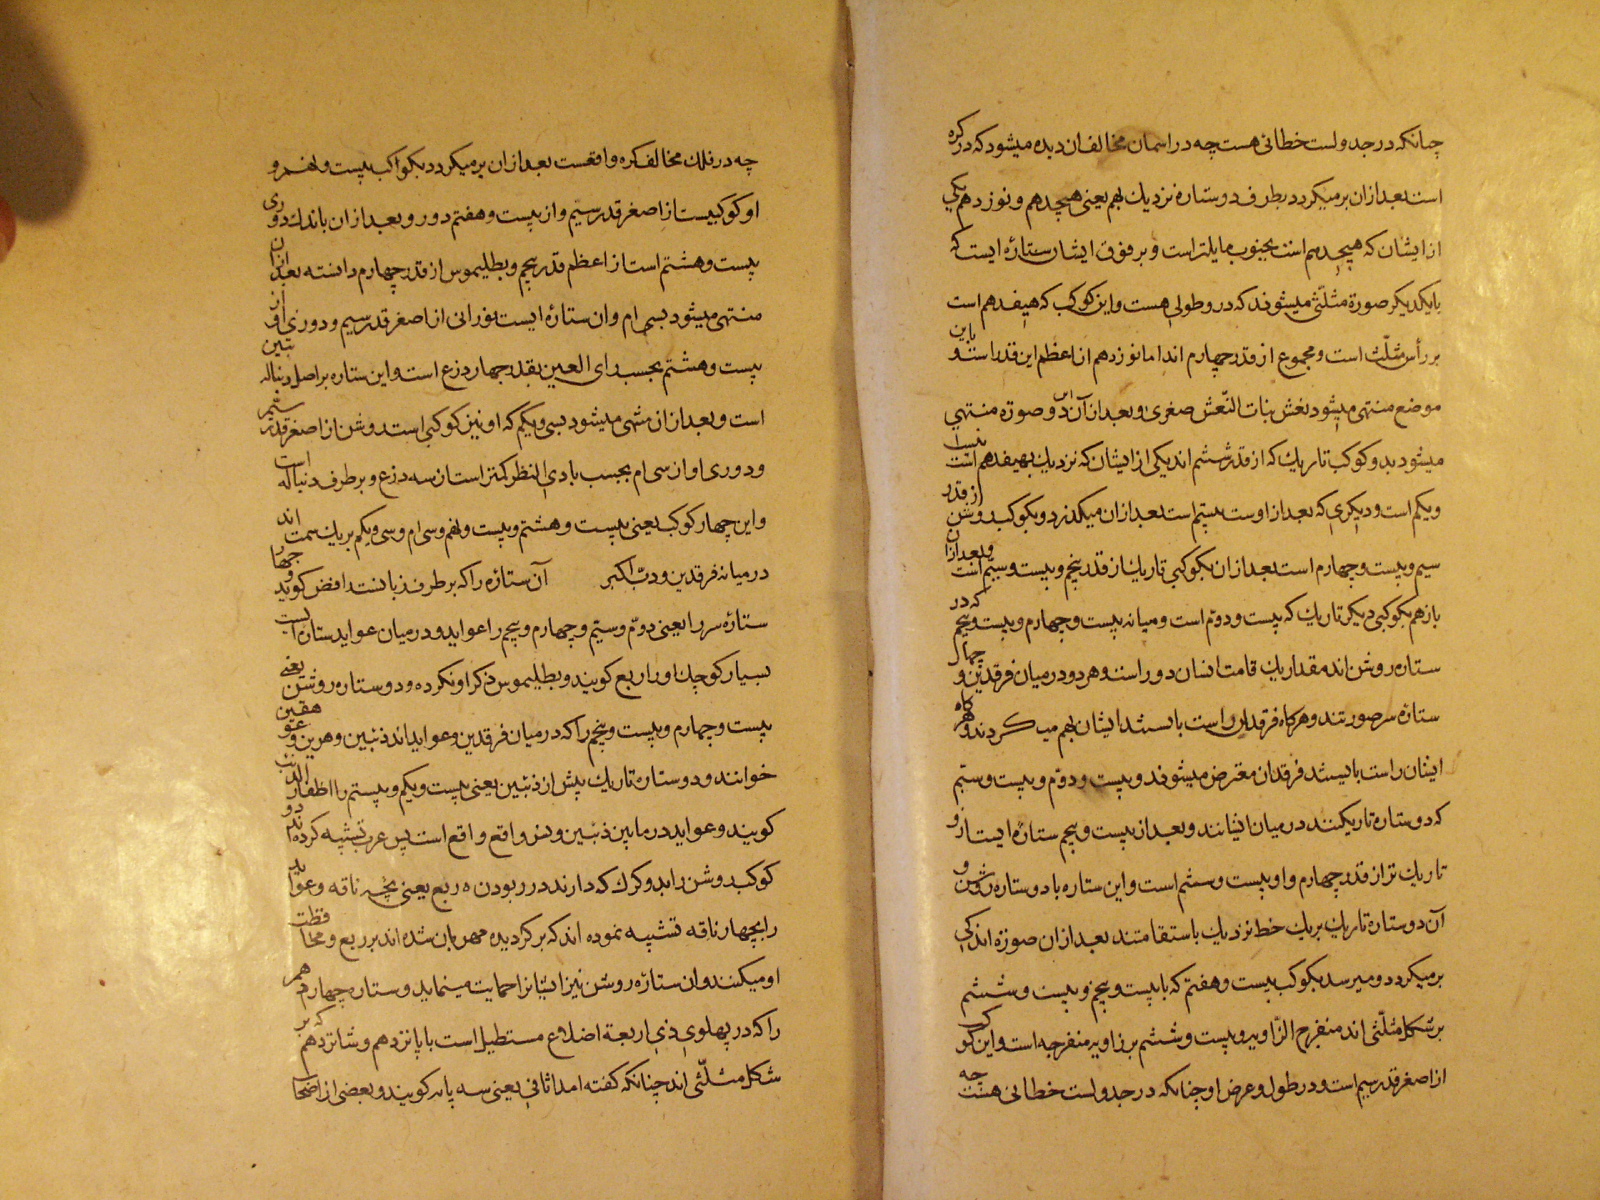 چنانکه در جدولست خطائی هست چه در اسمان مخالف ان دیده میشود که در کره
است بعد از ان برمیکردد بطرف دو ستاره نزدیك بهم یعنی هیجدهم و نوزدهم یکی
از ایشان که هیجدهم است بجنوب مایلتر است و بر فوق ایشان ستارۀ ایست که
بایکدیکر صورة مثلّثی میشوند که درو طولی هست و این کوکب که هیفدهم است
بر رأس مثلّث است و مجموع از قدر چهارم اند اما نوزدهم از اعظم این قدر است و باین
موضع منتهی میشود بغش بنات النّعش صغری و بعد از آن این دو صورة منتهی
میشود بدو کوکب تاریك که از قدر ششم اند یکی از ایشان که نزدیك بهیفدهم است بیست
ویکم است و دیکری که بعد از اوست بیستم است بعد از ان میکذرد و بکوکب روشن از قدر
سیم و بیست و چهارم است بعد از ان بکوکبی تاریك از قدر پنجم و بیست و سیّم است و بعد از ان
باز هم بکوکبی دیکر تاریك که بیست و دوّم است و میانه بیست و چهارم و بیست و پنجم که در
ستاره روشن اند مقدار یك قامت انسان دور است و هر دو در میان فرقدین و چهار
ستارۀ سر صورتند و هرکاه فرقدان راست بایستند ایشان بهم میکردند و هرکاه
ایشان راست بایستند فرقدان معترض میشوند و بیست و دوّم و بیست و سیّم
که دو ستاره تاریکند در میان ایشانند و بعد از بیست و پنجم ستارۀ ایست از و
تاریك تر از قدر چهارم و او بیست و ششم است و این ستاره با دو ستاره روشن و
آن دو ستاره تاریك بر یك خط نزدیك باستقامتند بعد از ان صورة اندکی
برمیکردد و میرسد بکوکب بیست و هفتم که با بیست و پنجم و بیست و ششم
بر شکل مثلّثی اند منفرج الزّاویه و بیست و ششم بر زاویه منفرجه است و این کوکب
از اصغر قدر سیم است و در طول و عرض او چنانکه در جدولست خطائی هست چه
چه در فلك مخالف کره واقعست بعد از ان برمیکردد بکواکب بیست و نهم و
او کوکبیست از اصغر قدر سیّم و از بیست و هفتم دور و بعد از ان باندك دوری
بیست و هشتم است از اعظم قدر پنجم و بطلیموس از قدر چهارم دانسته بعد از ان
منتهی میشود بسی ام وان ستارۀ ایست نورانی از اصغر قدر سیم و دوری او از
بیست و هشتم بحسب رای العین بقدر چهار ذرع است و این ستاره بر اصل دنباله تنین
است و بعد از ان منتهی میشود بسی ویکم که او نیز کوکبی است روشن از اصغر قدر سیّم
و دوری او از سی ام بحسب بادی النظر کمتر است از سه ذرع و بر طرف دنباله است
و این چهار کوکب یعنی بیست و هشتم و بیست و نهم و سی ام و سی و یکم بر یك سمت اند
در میانه فرقدین و دبّ اکبر آن ستارۀ را که بر طرف زبانست رافض کویند و چهار
ستارۀ سر را یعنی دوّم و سیّم و چهارم و پنجم را عواید و در میان عواید ستارۀ ایست
بسیار کوچك او را ربع کویند و بطلیموس ذکر او نکرده و دو ستاره روشن یعنی
بیست و چهارم و بیست و پنجم را که در میان فرقدین و عوایداند ذئبین و حرین و عوهقین
خوانند و دو ستاره تاریك پیش از ذئبین یعنی بیست و یکم و بیستم را اظفار الذئب
کویند و عواید در مابین ذئبین و نسر واقع واقع است پس عرب تشبیه کرده اند دو
کوکب روشن را بدو کرك که دارند در ربودن ربع یعنی بچّه ناقه و عواید
را بچهار ناقه تشبیه نموده اند که بر کردیده مهربان شده اند بر ربع و محافظت
او میکنند وان ستارۀ روشن نیز ایشانرا حمایت مینماید و ستاره چهاردهم
را که در پهلوی ذی اربعة اضلاع مستطیل است با پانزدهم و شانزدهم که بر
شکل مثلّثی اند چنانکه کفته امد اثافی یعنی سه پایه کویند و بعضی از اصحا